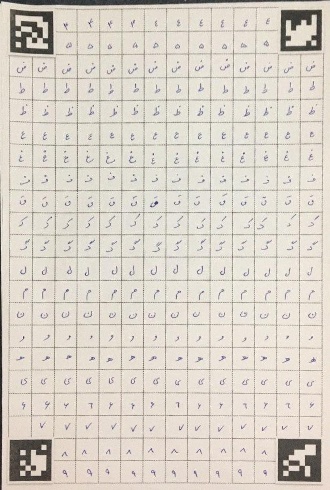 ۴ ۴ ۴ ۴ ۴ ۴ ۴ ۴ ۴ ۴
۵ ۵ ۵ ۵ ۵ ۵ ۵ ۵ ۵ ۵
ض ض ض ض ض ض ض ض ض ض ض ض ض ض
ط ط ط ط ط ط ط ط ط ط ط ط ط ط
ظ ظ ظ ظ ظ ظ ظ ظ ظ ظ ظ ظ ظ ظ
ع ع ع ع ع ع ع ع ع ع ع ع ع ع
غ غ غ غ غ غ غ غ غ غ غ غ غ غ
ف ف ف ف ف ف ف ف ف ف ف ف ف ف
ق ق ق ق ق ق ق ق ق ق ق ق ق ق
ک ک ک ک ک ک ک ک ک ک ک ک ک ک
گ گ گ گ گ گ گ گ گ گ گ گ گ گ
ل ل ل ل ل ل ل ل ل ل ل ل ل ل
م م م م م م م م م م م م م م
ن ن ن ن ن ن ن ن ن ن ن ن ن ن
و و و و و و و و و و و و و و
ه ه ه ه ه ه ه ه ه ه ه ه ه ه
ی ی ی ی ی ی ی ی ی ی ی ی ی ی
۶ ۶ ۶ ۶ ۶ ۶ ۶ ۶ ۶ ۶ ۶ ۶ ۶ ۶
۷ ۷ ۷ ۷ ۷ ۷ ۷ ۷ ۷ ۷ ۷ ۷ ۷
۸ ۸ ۸ ۸ ۸ ۸ ۸ ۸ ۸ ۸
۹ ۹ ۹ ۹ ۹ ۹ ۹ ۹ ۹ ۹